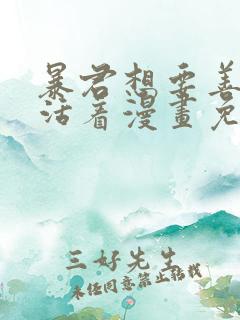 暴君想要善
活着漫畫免
三好先生
未经同意禁止转载